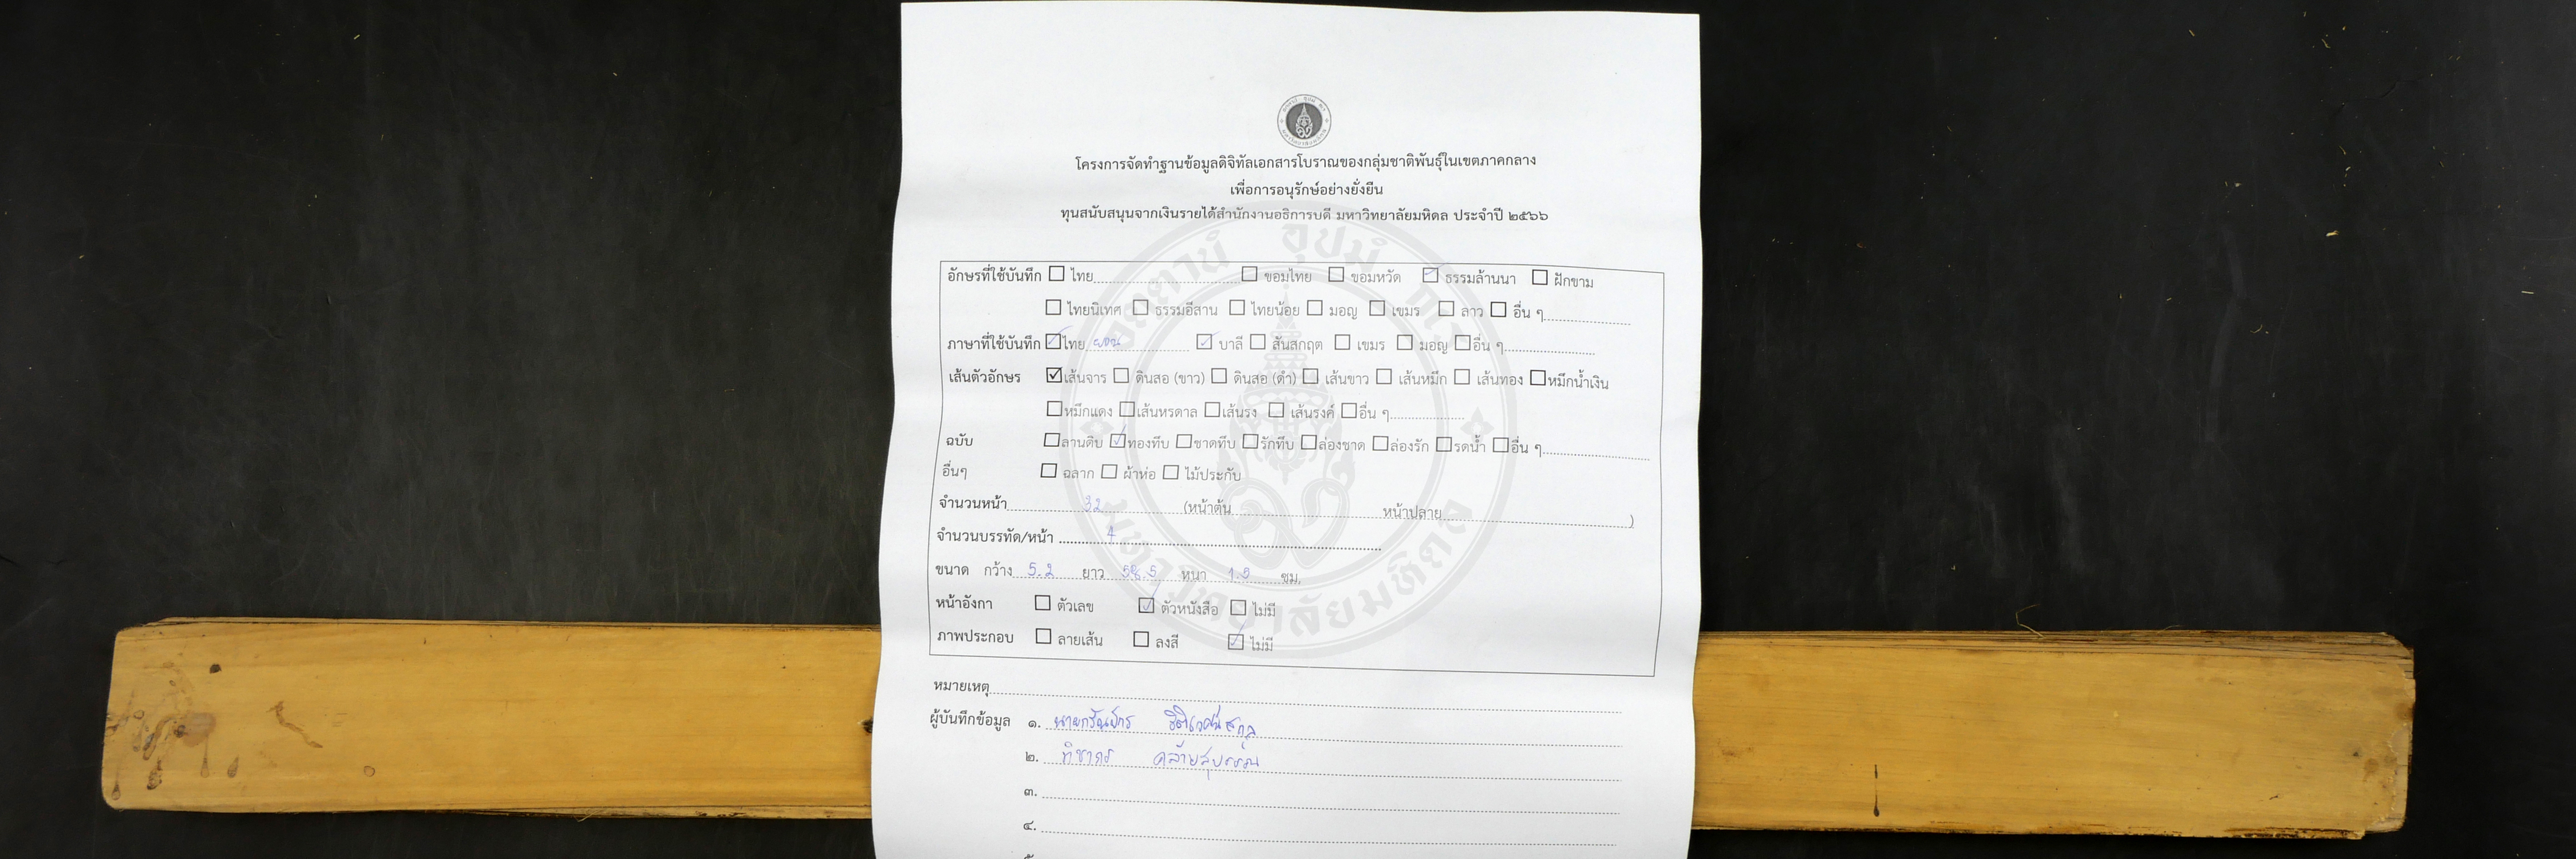 โครงการจัดทำฐานข้อมูลดิจิทัลเอกสารโบราณของกลุ่มชาติพันธุ์ในเขตภาคกลาง
เพื่อการอนุรักษ์อย่างยั่งยืน
ทุนสนับสนุนจากเงินรายได้สำนักงานอธิการบดี มหาวิทยาลัยมหิดล ประจำปี ๒๕๖๖
อักษรที่ใช้บันทึก ☐ ไทย ☐ ขอมไทย ☐ ขอมหวัด ☑ ธรรมล้านนา ☐ ฝักขาม
☐ ไทยนิเทศ ☐ ธรรมอีสาน ☐ ไทยน้อย ☐ มอญ ☐ เขมร ☐ ลาว ☐ อื่น ๆ
ภาษาที่ใช้บันทึก ☑ ไทย ยวน ☑ บาลี ☐ สันสกฤต ☐ เขมร ☐ มอญ ☐ อื่น ๆ
เส้นตัวอักษร ☑ เส้นจาร ☐ ดินสอ (ขาว) ☐ ดินสอ (ดำ) ☐ เส้นขาว ☐ เส้นหมึก ☐ เส้นทอง ☐ หมึกน้ำเงิน
☐ หมึกแดง ☐ เส้นหรดาล ☐ เส้นรง ☐ เส้นรงค์ ☐ อื่น ๆ
ฉบับ ☐ ลานดิบ ☑ ทองทึบ ☐ ชาดทึบ ☐ รักทึบ ☐ ล่องชาด ☐ ล่องรัก ☐ รดน้ำ ☐ อื่น ๆ
อื่นๆ ☐ ฉลาก ☐ ผ้าห่อ ☐ ไม้ประกับ
จำนวนหน้า 32 (หน้าต้น หน้าปลาย )
จำนวนบรรทัด/หน้า 4
ขนาด กว้าง 5.2 ยาว 58.5 หนา 1.5 ซม.
หน้าอังกา ☐ ตัวเลข ☑ ตัวหนังสือ ☐ ไม่มี
ภาพประกอบ ☐ ลายเส้น ☐ ลงสี ☑ ไม่มี
หมายเหตุ
ผู้บันทึกข้อมูล ๑.
๒. ทิชากร คล้ายสุบรรณ
๓.
๔.